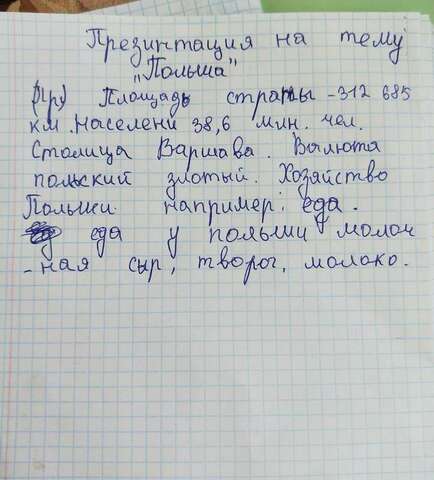 Презинтация на тему
"Польша"
(Ир) Площадь страны - 312 685
км. Населени 38,6 млн. чел.
Столица Варшава. Вылюта
польский злотый. Хозяйство
Польши например: еда.
еда у польши молоч
-ная сыр, творог, молоко.